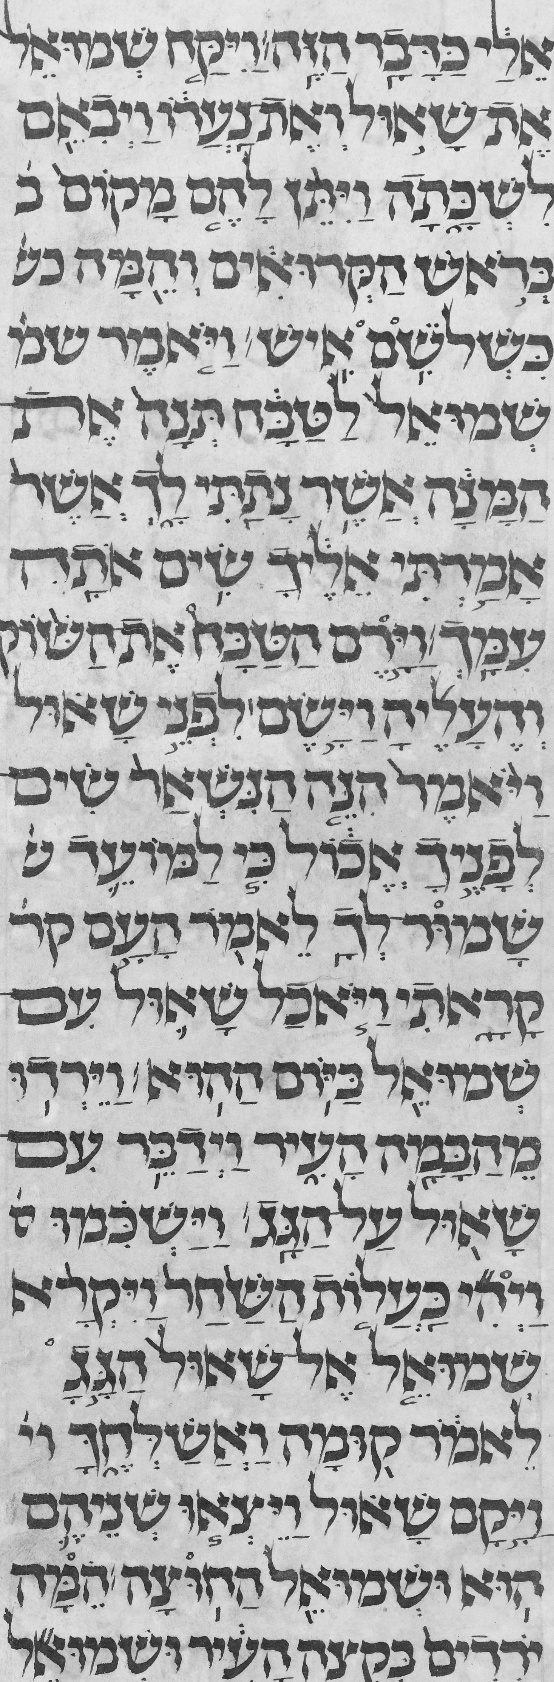 אֵלַי כַּדָּבָר הַזֶּה׃ וַיִּקַּח שְׁמוּאֵל
אֶת שָׁאוּל וְאֶת נַעֲרוֹ וַיְבִאֵם
לִשְׁכָּתָה וַיִּתֵּן לָהֶם מָקוֹם ב
בְּרֹאשׁ הַקְּרוּאִים וְהֵמָּה כש
כִּשְׁלֹשִׁם אִישׁ׃ וַיֹּאמֶר שמ
שְׁמוּאֵל לַטַּבָּח תְּנָה אֶת
הַמָּנָה אֲשֶׁר נָתַתִּי לָךְ אֲשֶׁר
אָמַרְתִּי אֵלֶיךָ שִׂים אֹתָהּ
עִמָּךְ׃ וַיָּרֶם הַטַּבָּח אֶת הַשּׁוֹק
וְהֶעָלֶיהָ וַיָּשֶׂם לִפְנֵי שָׁאוּל
וַיֹּאמֶר הִנֵּה הַנִּשְׁאָר שִׂים
לְפָנֶיךָ אֱכוֹל כִּי לַמּוֹעֵד ש
שָׁמוּר לְךָ לֵאמֹר הָעָם קר
קָרָאתִי וַיֹּאכַל שָׁאוּל עִם
שְׁמוּאֵל בַּיּוֹם הַהוּא׃ וַיֵּרְדוּ
מֵהַבָּמָה הָעִיר וַיְדַבֵּר עִם
שָׁאוּל עַל הַגָּג׃ וַיַּשְׁכִּמוּ ס
וַיְהִי כַּעֲלוֹת הַשַּׁחַר וַיִּקְרָא
שְׁמוּאֵל אֶל שָׁאוּל הַגָּגָ
לֵאמֹר קוּמָה וַאֲשַׁלְּחֶךָּ וי
וַיָּקָם שָׁאוּל וַיֵּצְאוּ שְׁנֵיהֶם
הוּא וּשְׁמוּאֵל הַחוּצָה׃ הֵמָּה
יוֹרְדִים בִּקְצֵה הָעִיר וּשְׁמוּאֵל